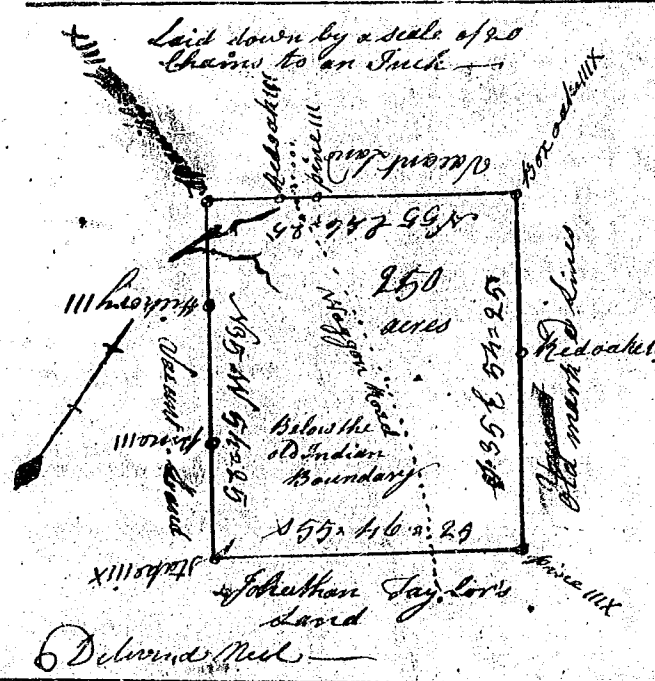 Laid down by a scale of 20
Chains to an Inch
Redoak III
pine III
Vacant Land
Box oake IIIX
N55 E46=25
250
acres
Waggon Road
Hickory III
Vacant Land
N35 W 54=25
pine III
Below the
old Indian
Boundary
S35 E 54=25
Redoake
Old mark'd Lines
S55= 46=25
stake IIIX
Johnathan Taylor's
Land
pine IIIX
Deliverd